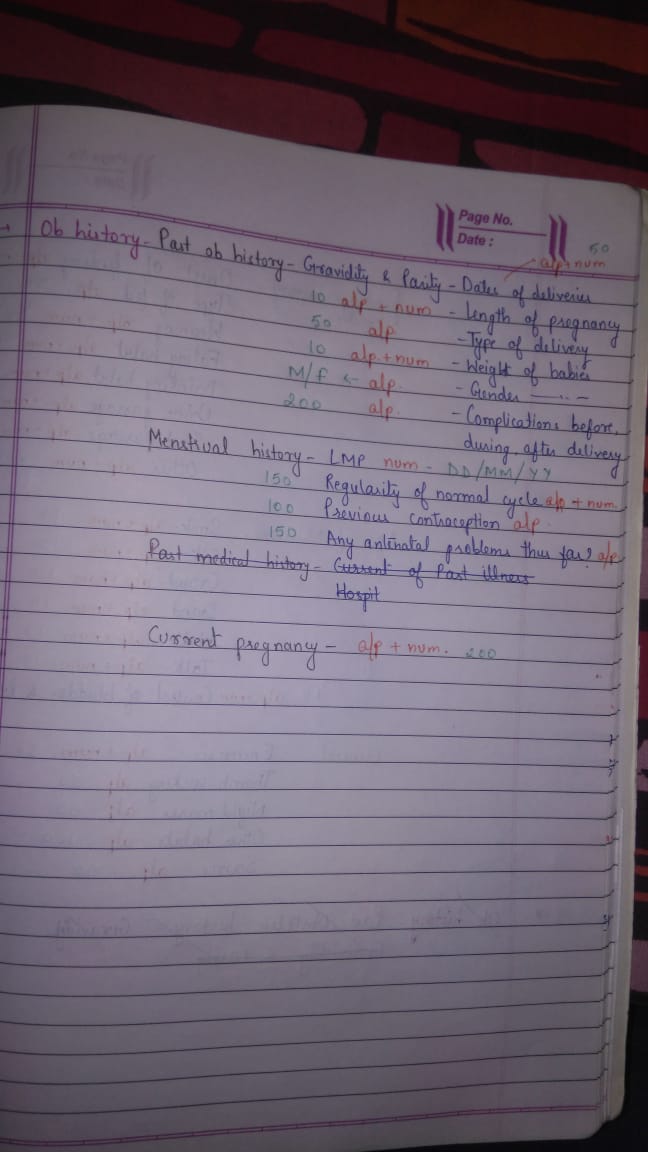 Page No.
Date :
50
alp + num
Ob history - Past ob history - Gravidity & Parity - Dates of deliveries
10 alp + num - Length of pregnancy
50 alp - Type of delivery
10 alp + num - Weight of babies
M/F ← alp. - Gender
200 alp. - Complications before, during, after delivery
Menstrual history - LMP num - DD/MM/YY
150 Regularity of normal cycle alp + num.
100 Previous contraception alp.
150 Any antinatal problems thus far? alp
Past medical history - Current of Past illness
Hospit
Current pregnancy - alp + num. 200